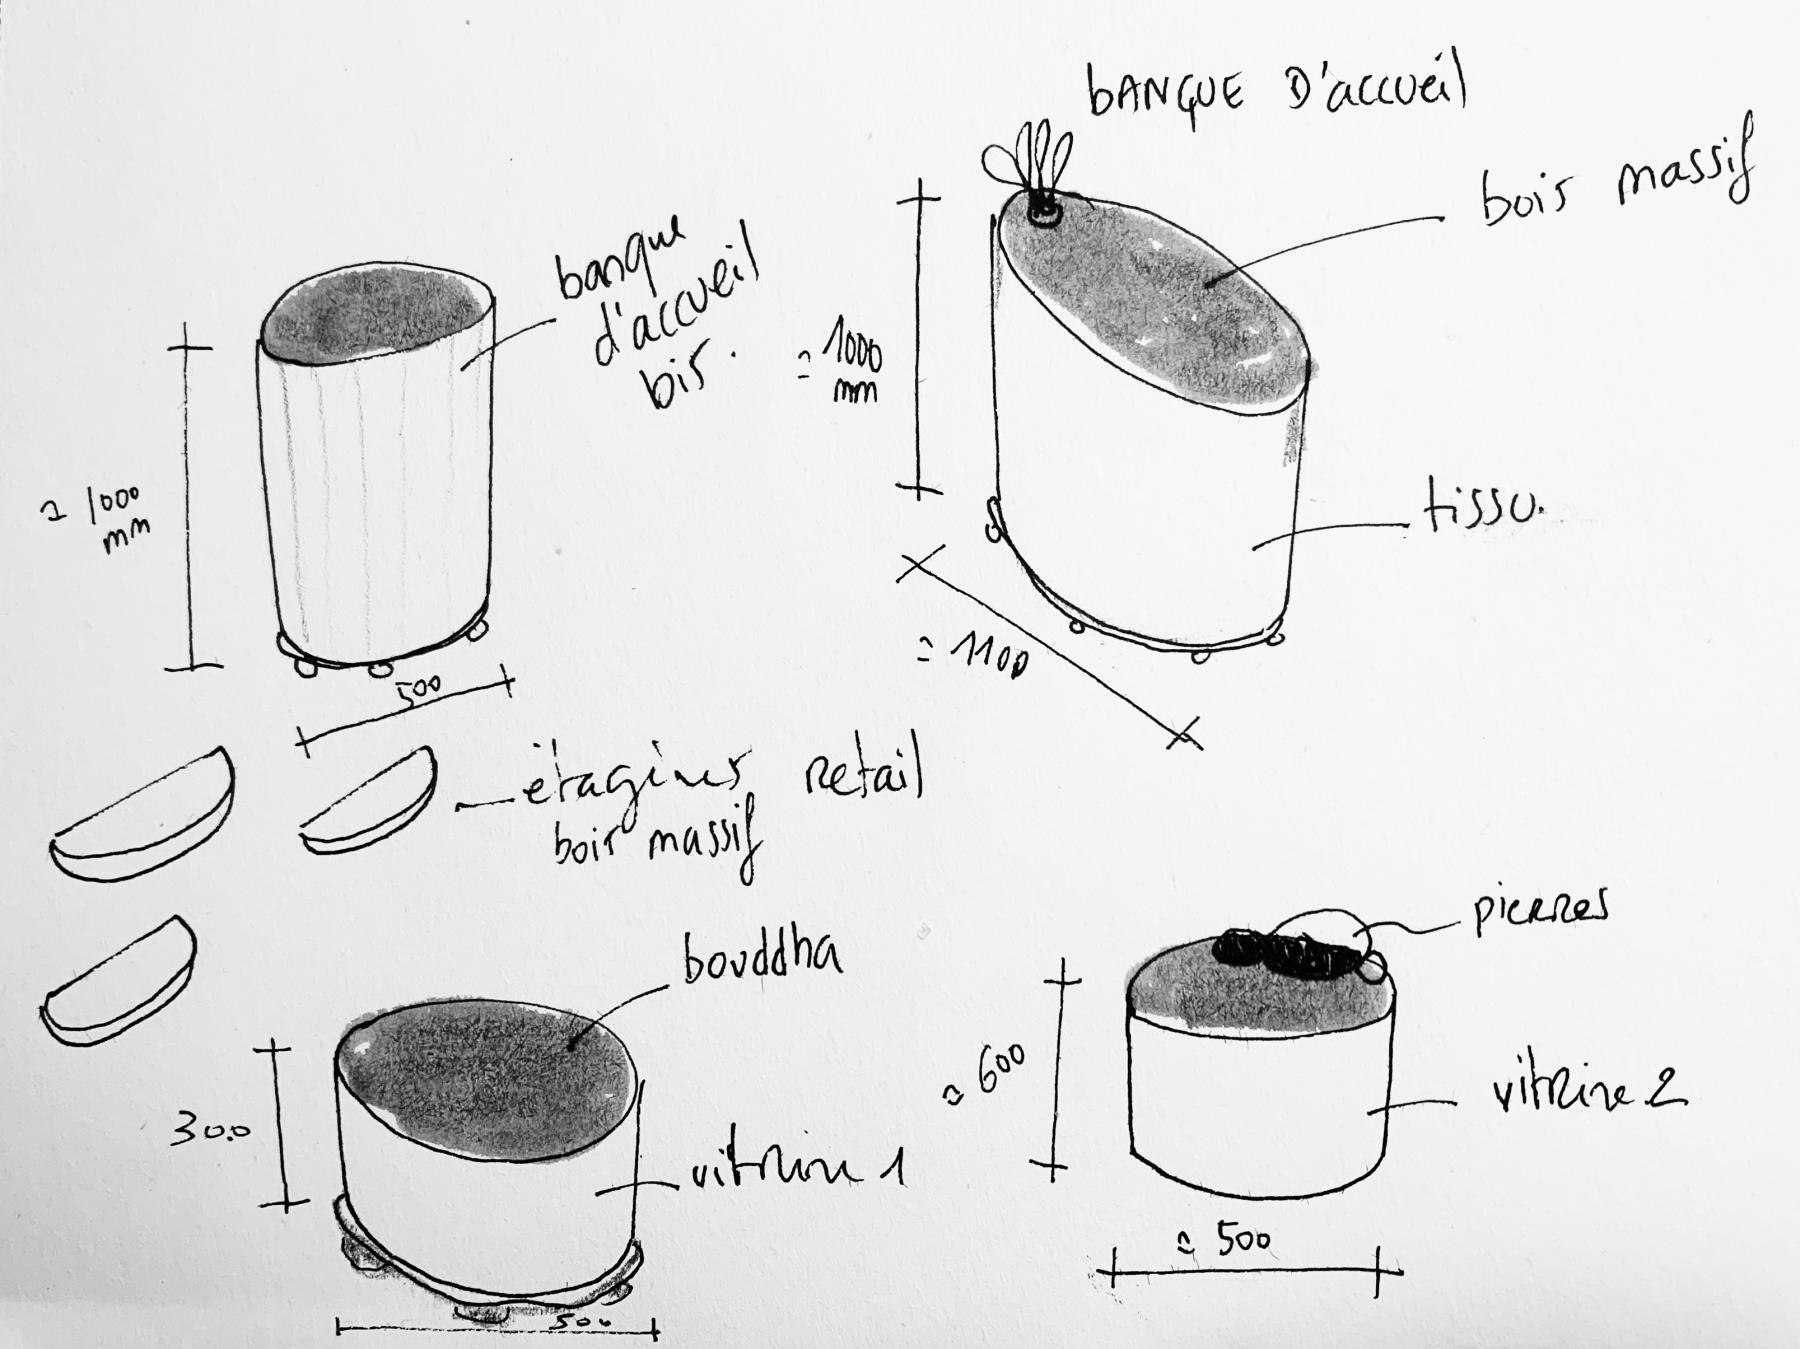 bANQUE D'accueil
bois massif
≃ 1000
mm
tissu.
≃ 1100
banque
d'accueil
bis.
≃ 1000
mm
500
étagères retail
bois massif
bouddha
300
vitrine 1
500
pierres
≃ 600
vitrine 2
≃ 500